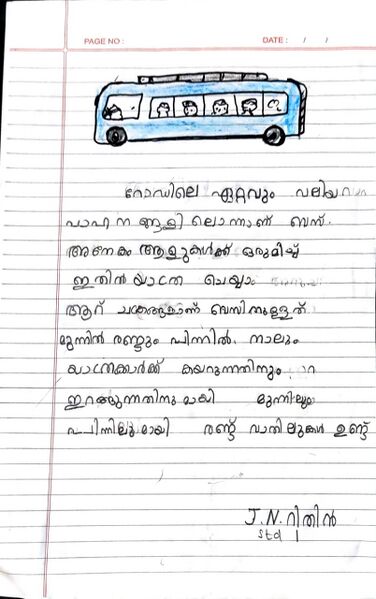 PAGE NO :
DATE : / /
റോഡിലെ ഏറ്റവും വലിയ
വാഹനങ്ങളിലൊന്നാണ് ബസ്.
അനേകം ആളുകൾക്ക് ഒരുമിച്ച്
ഇതിൽ യാത്ര ചെയ്യാം
ആറ് ചക്രങ്ങളാണ് ബസിനുള്ളത്
മുന്നിൽ രണ്ടും പിന്നിൽ. നാലും
യാത്രക്കാർക്ക് കയറുന്നതിനും
ഇറങ്ങുന്നതിനുമായി മുന്നിലും
പിന്നിലുമായി രണ്ട് വാതിലുകൾ ഉണ്ട്
J.N.റിതിൻ
std I